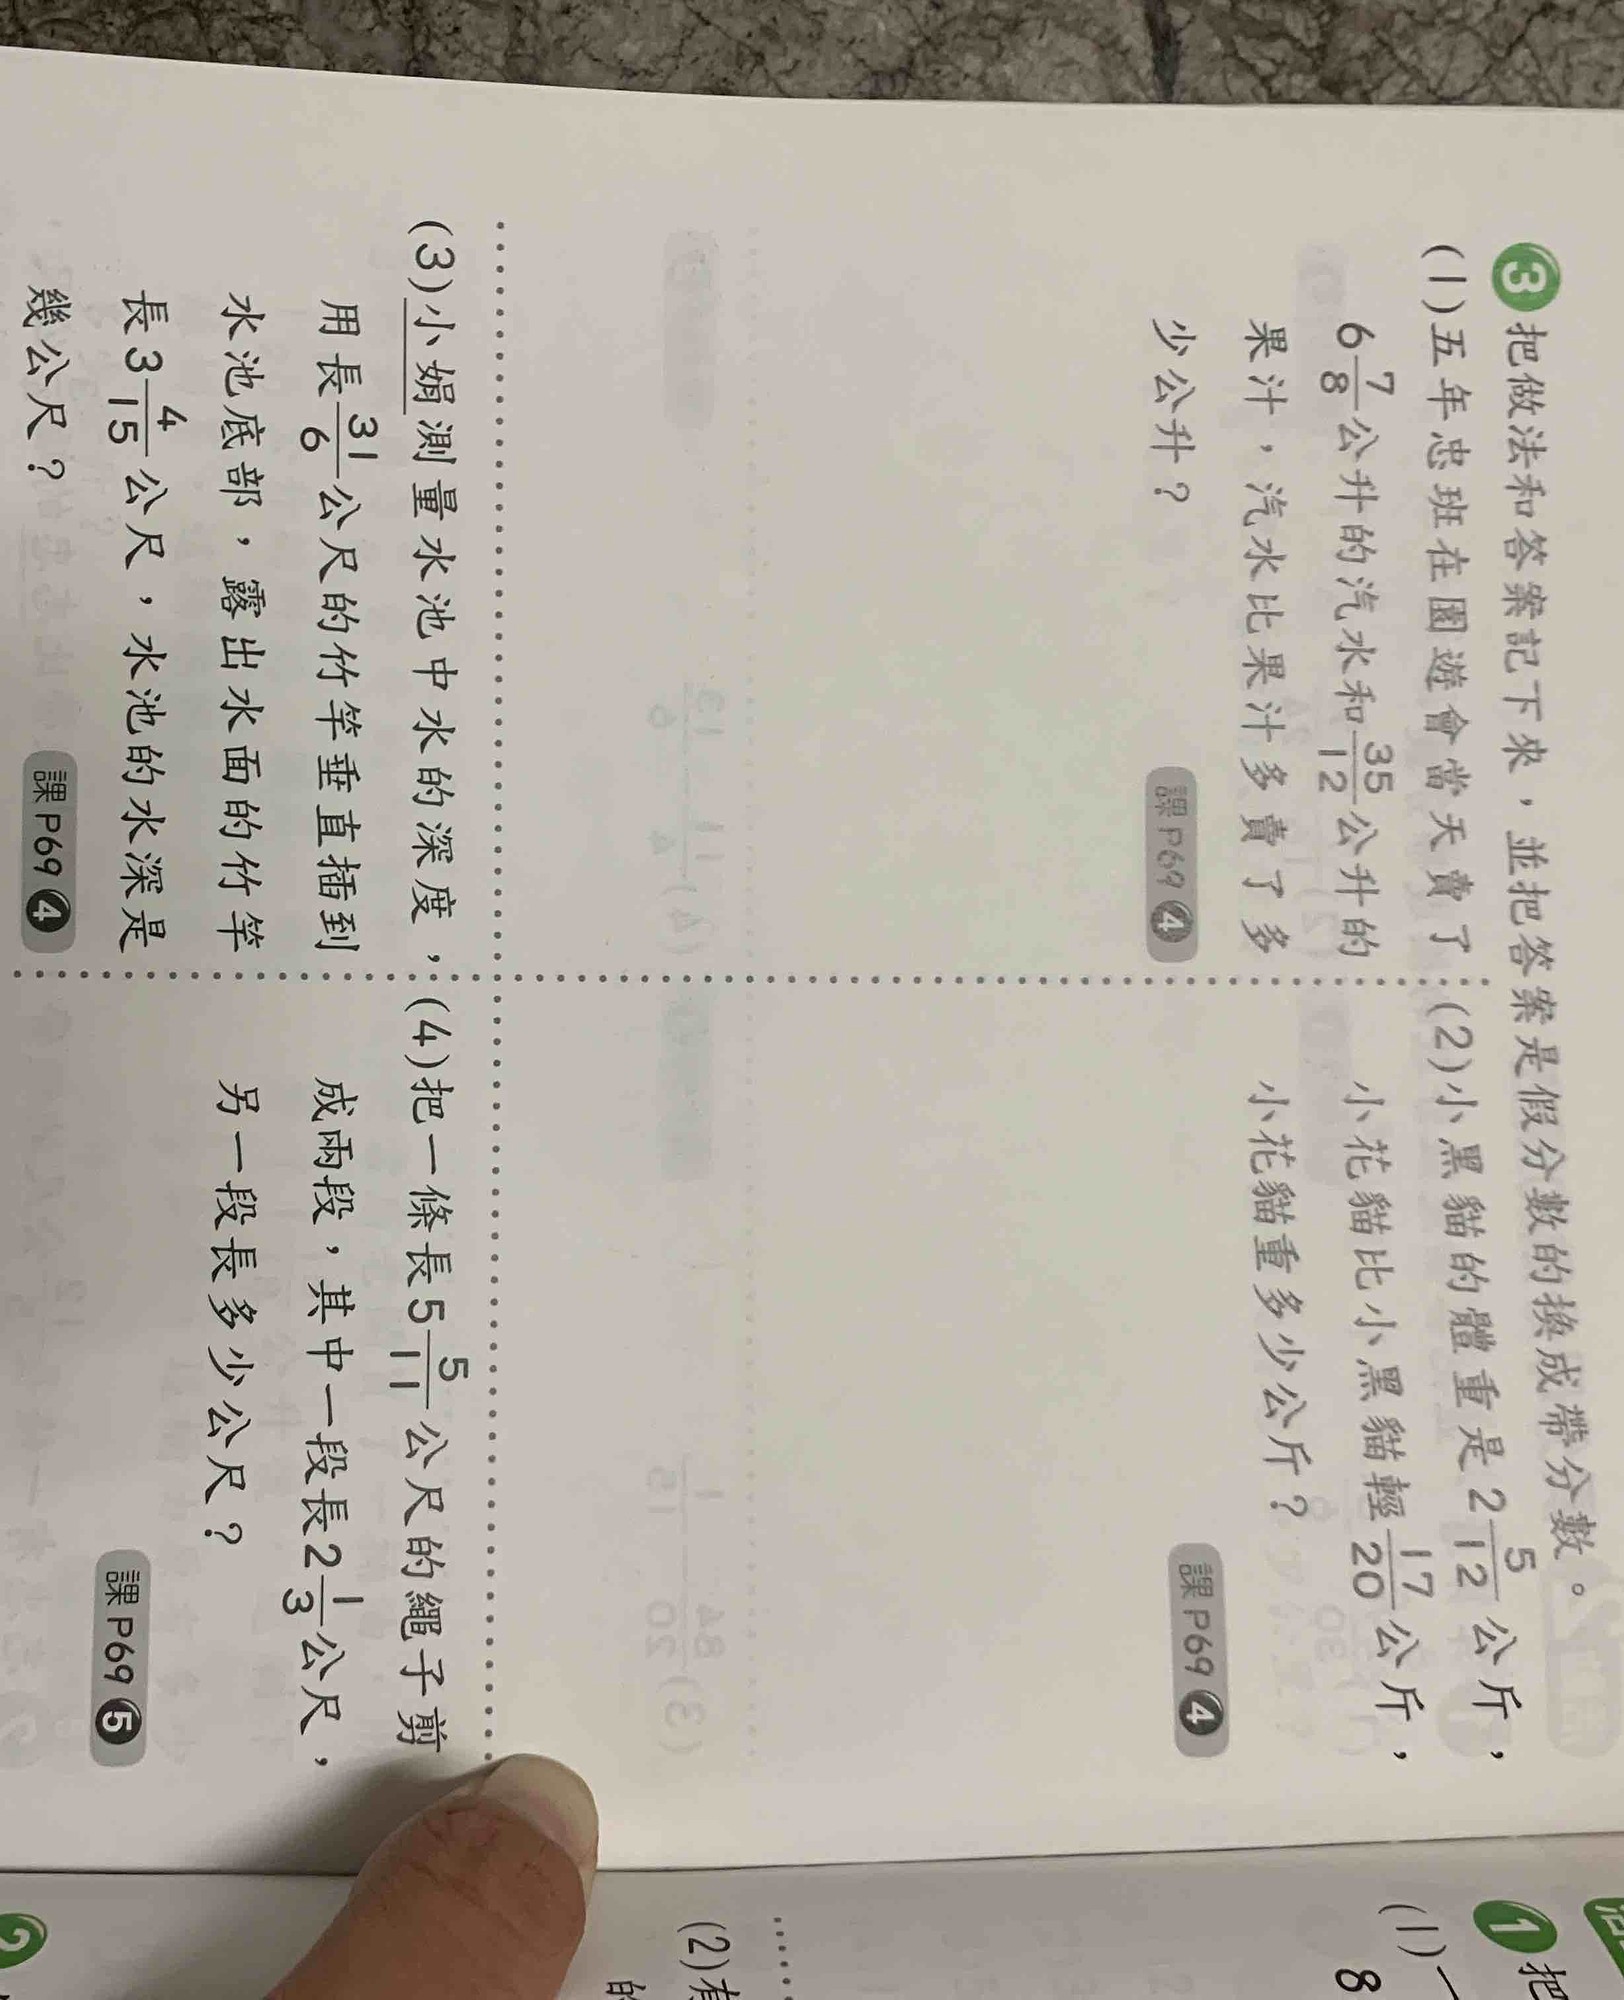 3 把做法和答案記下來，並把答案是假分數的換成帶分數。
(1)五年忠班在園遊會當天賣了
6 7/8 公升的汽水和 35/12 公升的
果汁，汽水比果汁多賣了多
少公升？
課P69 4
(2)小黑貓的體重是 2 5/12 公斤，
小花貓比小黑貓輕 17/20 公斤，
小花貓重多少公斤？
課P69 4
(3)小娟測量水池中水的深度，
用長 31/6 公尺的竹竿垂直插到
水池底部，露出水面的竹竿
長 3 4/15 公尺，水池的水深是
幾公尺？
課P69 4
(4)把一條長 5 5/11 公尺的繩子剪
成兩段，其中一段長 2 1/3 公尺，
另一段長多少公尺？
課P69 5
1 把
(1)一
8
(2)有
的
2